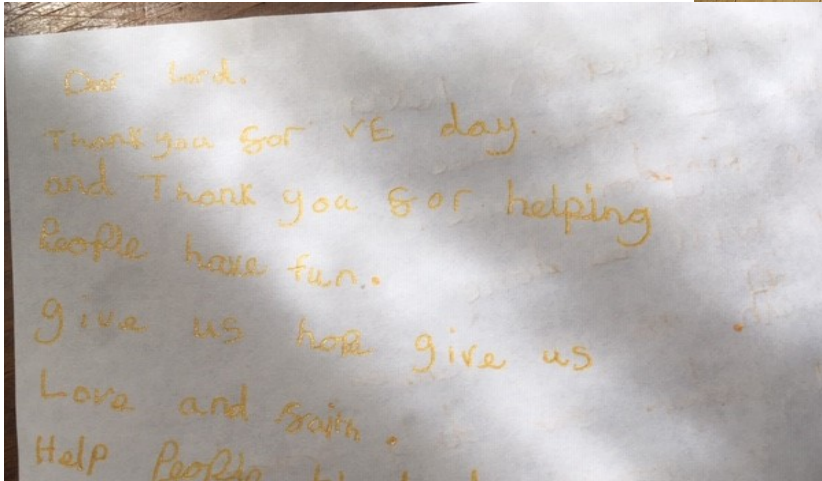 Dear Lord.
Thank you for VE day.
and Thank you for helping
People have fun.
give us hope give us
Love and faith.
Help People